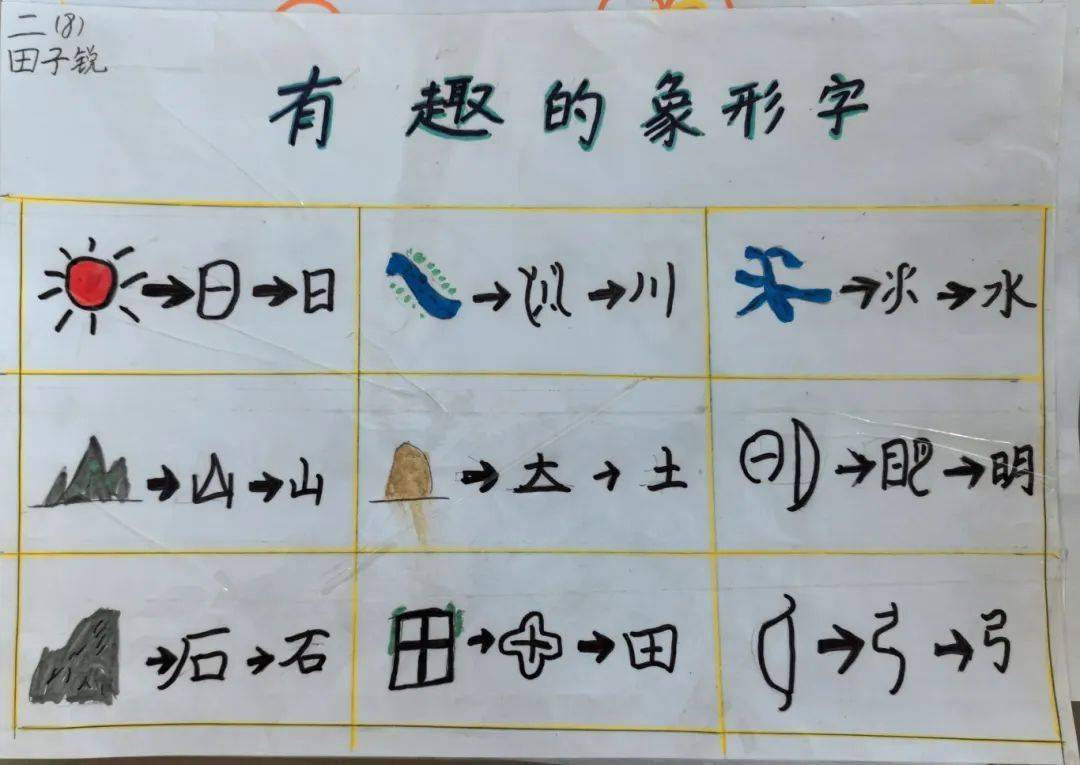 二(8)
田子锐
有趣的象形字
日→日 川→川 水→水
山→山 土→土 明→明
石→石 田 弓→弓